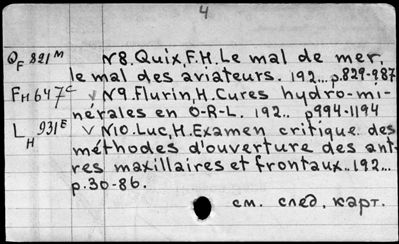 4
QF 821M N8.Quix,F.H.Le mal de mer,
le mal des aviateurs. 192...p.829-987
FH647C v N9.Flurin,H.Cures hydro-mi-
nérales en O-R-L. 192.. p994-1194
LH 931E v N10.Luc,H.Examen critique des
méthodes d'ouverture des ant-
res maxillaires et frontaux..192...
p.30-86.
см. след. карт.